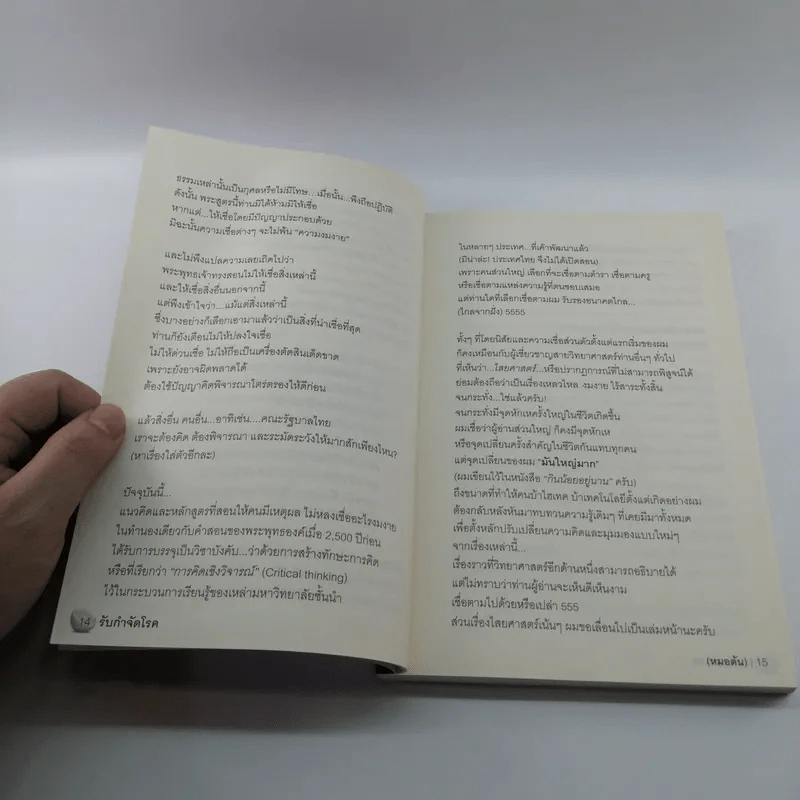 ธรรมเหล่านั้นเป็นกุศลหรือไม่มีโทษ...เมื่อนั้น...พึงถือปฏิบัติ
ดังนั้น พระสูตรนี้ท่านมิได้ห้ามมิให้เชื่อ
หากแต่...ให้เชื่อโดยมีปัญญาประกอบด้วย
มิฉะนั้นความเชื่อต่างๆ จะไม่พ้น "ความงมงาย"
และไม่พึงแปลความเลยเถิดไปว่า
พระพุทธเจ้าทรงสอนไม่ให้เชื่อสิ่งเหล่านี้
และให้เชื่อสิ่งอื่นนอกจากนี้
แต่พึงเข้าใจว่า...แม้แต่สิ่งเหล่านี้
ซึ่งบางอย่างก็เลือกเอามาแล้วว่าเป็นสิ่งที่น่าเชื่อที่สุด
ท่านก็ยังเตือนไม่ให้ปลงใจเชื่อ
ไม่ให้ด่วนเชื่อ ไม่ให้ถือเป็นเครื่องตัดสินเด็ดขาด
เพราะยังอาจผิดพลาดได้
ต้องใช้ปัญญาคิดพิจารณาไตร่ตรองให้ดีก่อน
แล้วสิ่งอื่น คนอื่น...อาทิเช่น....คณะรัฐบาลไทย
เราจะต้องคิด ต้องพิจารณา และระมัดระวังให้มากสักเพียงไหน?
(หาเรื่องใส่ตัวอีกละ)
ปัจจุบันนี้...
แนวคิดและหลักสูตรที่สอนให้คนมีเหตุผล ไม่หลงเชื่ออะไรงมงาย
ในทำนองเดียวกับคำสอนของพระพุทธองค์เมื่อ 2,500 ปีก่อน
ได้รับการบรรจุเป็นวิชาบังคับ...ว่าด้วยการสร้างทักษะการคิด
หรือที่เรียกว่า "การคิดเชิงวิจารณ์" (Critical thinking)
ไว้ในกระบวนการเรียนรู้ของเหล่ามหาวิทยาลัยชั้นนำ
14 รับกำจัดโรค
ในหลายๆ ประเทศ...ที่เค้าพัฒนาแล้ว
(มิน่าล่ะ! ประเทศไทย จึงไม่ได้เปิดสอน)
เพราะคนส่วนใหญ่ เลือกที่จะเชื่อตามตำรา เชื่อตามครู
หรือเชื่อตามแหล่งความรู้ที่ตนชอบเสมอ
แต่ท่านใดที่เลือกเชื่อตามผม รับรองอนาคตไกล...
(ไกลจากฝั่ง) 5555
ทั้งๆ ที่โดยนิสัยและความเชื่อส่วนตัวตั้งแต่แรกเริ่มของผม
ก็คงเหมือนกับผู้เชี่ยวชาญสายวิทยาศาสตร์ท่านอื่นๆ ทั่วไป
ที่เห็นว่า...ไสยศาสตร์...หรือปรากฏการณ์ที่ไม่สามารถพิสูจน์ได้
ย่อมต้องถือว่าเป็นเรื่องเหลวไหล งมงาย ไร้สาระทั้งสิ้น
จนกระทั่ง...ใช่แล้วครับ!
จนกระทั่งมีจุดหักเหครั้งใหญ่ในชีวิตเกิดขึ้น
ผมเชื่อว่าผู้อ่านส่วนใหญ่ ก็คงมีจุดหักเห
หรือจุดเปลี่ยนครั้งสำคัญในชีวิตกันแทบทุกคน
แต่จุดเปลี่ยนของผม "มันใหญ่มาก"
(ผมเขียนไว้ในหนังสือ "กินน้อยอยู่นาน" ครับ)
ถึงขนาดที่ทำให้คนบ้าไฮเทค บ้าเทคโนโลยีตั้งแต่เกิดอย่างผม
ต้องกลับหลังหันมาทบทวนความรู้เดิมๆ ที่เคยมีมาทั้งหมด
เพื่อตั้งหลักปรับเปลี่ยนความคิดและมุมมองแบบใหม่ๆ
จากเรื่องเหล่านี้...
เรื่องราวที่วิทยาศาสตร์อีกด้านหนึ่งสามารถอธิบายได้
แต่ไม่ทราบว่าท่านผู้อ่านจะเห็นดีเห็นงาม
เชื่อตามไปด้วยหรือเปล่า 555
ส่วนเรื่องไสยศาสตร์เน้นๆ ผมขอเลื่อนไปเป็นเล่มหน้านะครับ
(หมอต้น) | 15